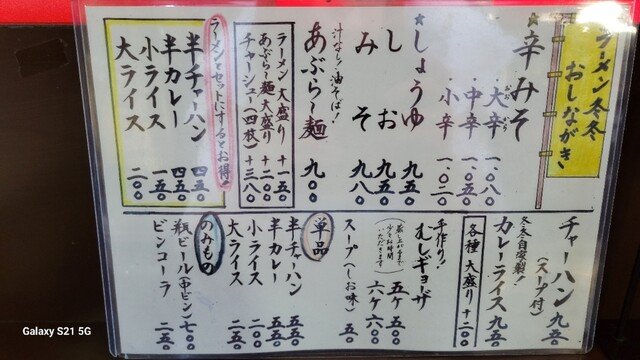 ラーメン冬冬
おしながき
★辛みそ
・大辛 一、〇八〇
・中辛 一、〇五〇
・小辛 一、〇二〇
★しょうゆ 九五〇
しお 九五〇
みそ 九八〇
汁なし！油そば！
あぶら〜麺 九〇〇
ラーメン 大盛り +一五〇
あぶら〜麺 大盛り +二〇〇
チャーシュー(四枚) +三八〇
ラーメンとセットにするとお得！
半チャーハン 四五〇
半カレー 四五〇
小ライス 一五〇
大ライス 二〇〇
チャーハン 九五〇
(スープ付)
冬冬自家製！
カレーライス 九五〇
各種 大盛り +二〇〇
手作り！
むしギョーザ
五ヶ 五〇〇
六ヶ 六〇〇
(蒸し上がるまで
少々お時間
いただきます)
スープ(しお味) 五〇
単品
半チャーハン 五五〇
半カレー 五五〇
小ライス 二〇〇
大ライス 二五〇
のみもの
瓶ビール(中ビン) 七〇〇
ビンコーラ 二五〇
Galaxy S21 5G